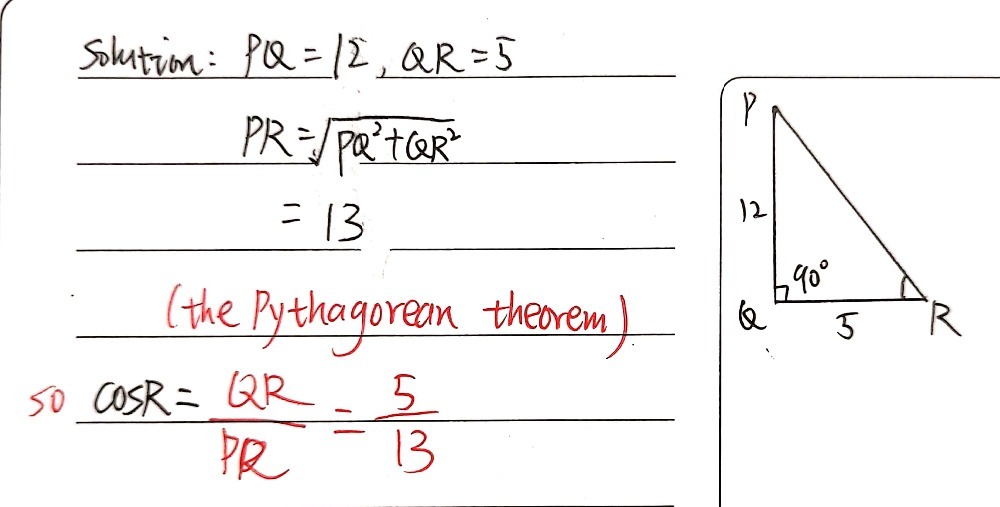 Solution: PQ=12, QR=5
PR=√PQ²+QR²
= 13
(the Pythagorean theorem)
so cosR= QR/PR = 5/13
P
12
90°
Q
5
R